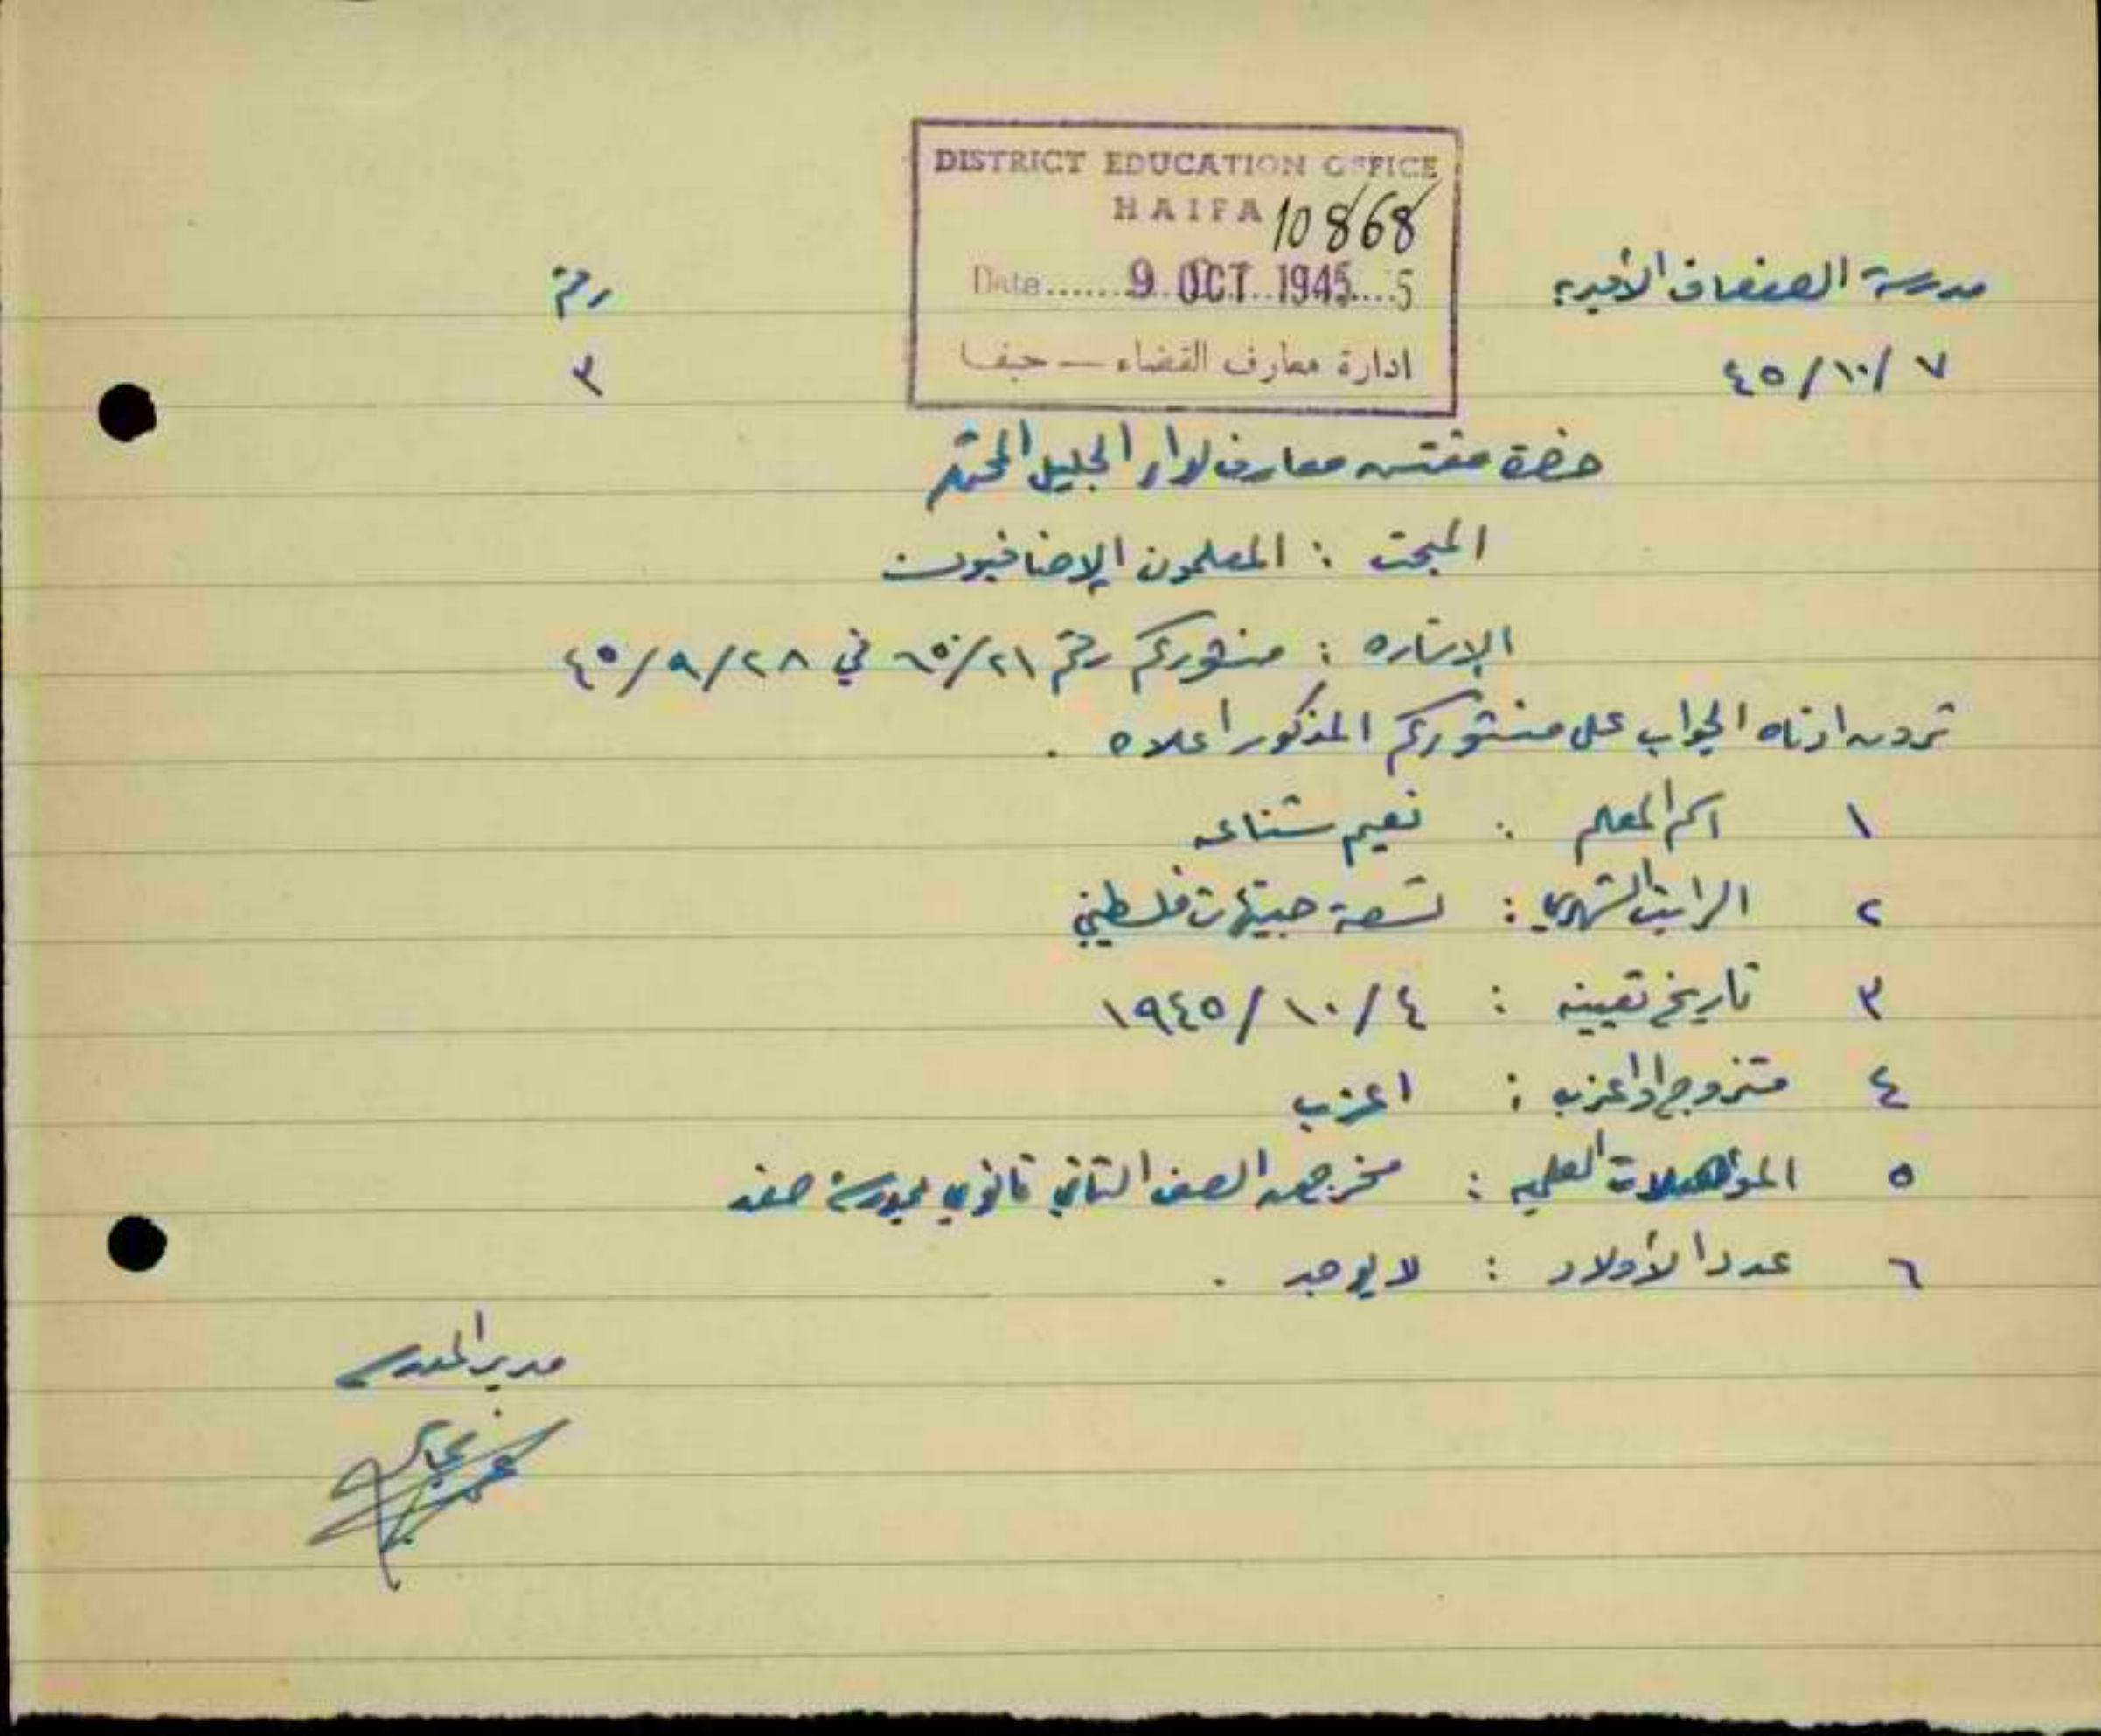 DISTRICT EDUCATION OFFICE
HAIFA 10868
Date...... 9 OCT 1945....5
ادارة معارف القضاء — حيفا
مدرسة الصفصاف الأميريه
رقم
٧ /١٠/ ٤٥
٣
حضرة مفتش معارف لواء الجليل المحترم
المبحث : المعلمون الإضافيون
الإشاره : منشوركم رقم ٦٥/٢١ في ٤٥/٩/٢٨
ترون ادناه الجواب على منشوركم المذكور اعلاه .
١ اسم المعلم : نعيم شناعه
٢ الراتب الشهري : تسعة جنيهات فلسطيني
٣ تاريخ تعيينه : ١٩٤٥/١٠/٤
٤ متزوج او اعزب : اعزب
٥ المؤهلات العلميه : مخرج من الصف الثاني ثانوي بمدرسة صفد
٦ عدد الأولاد : لا يوجد .
مدير المدرسه